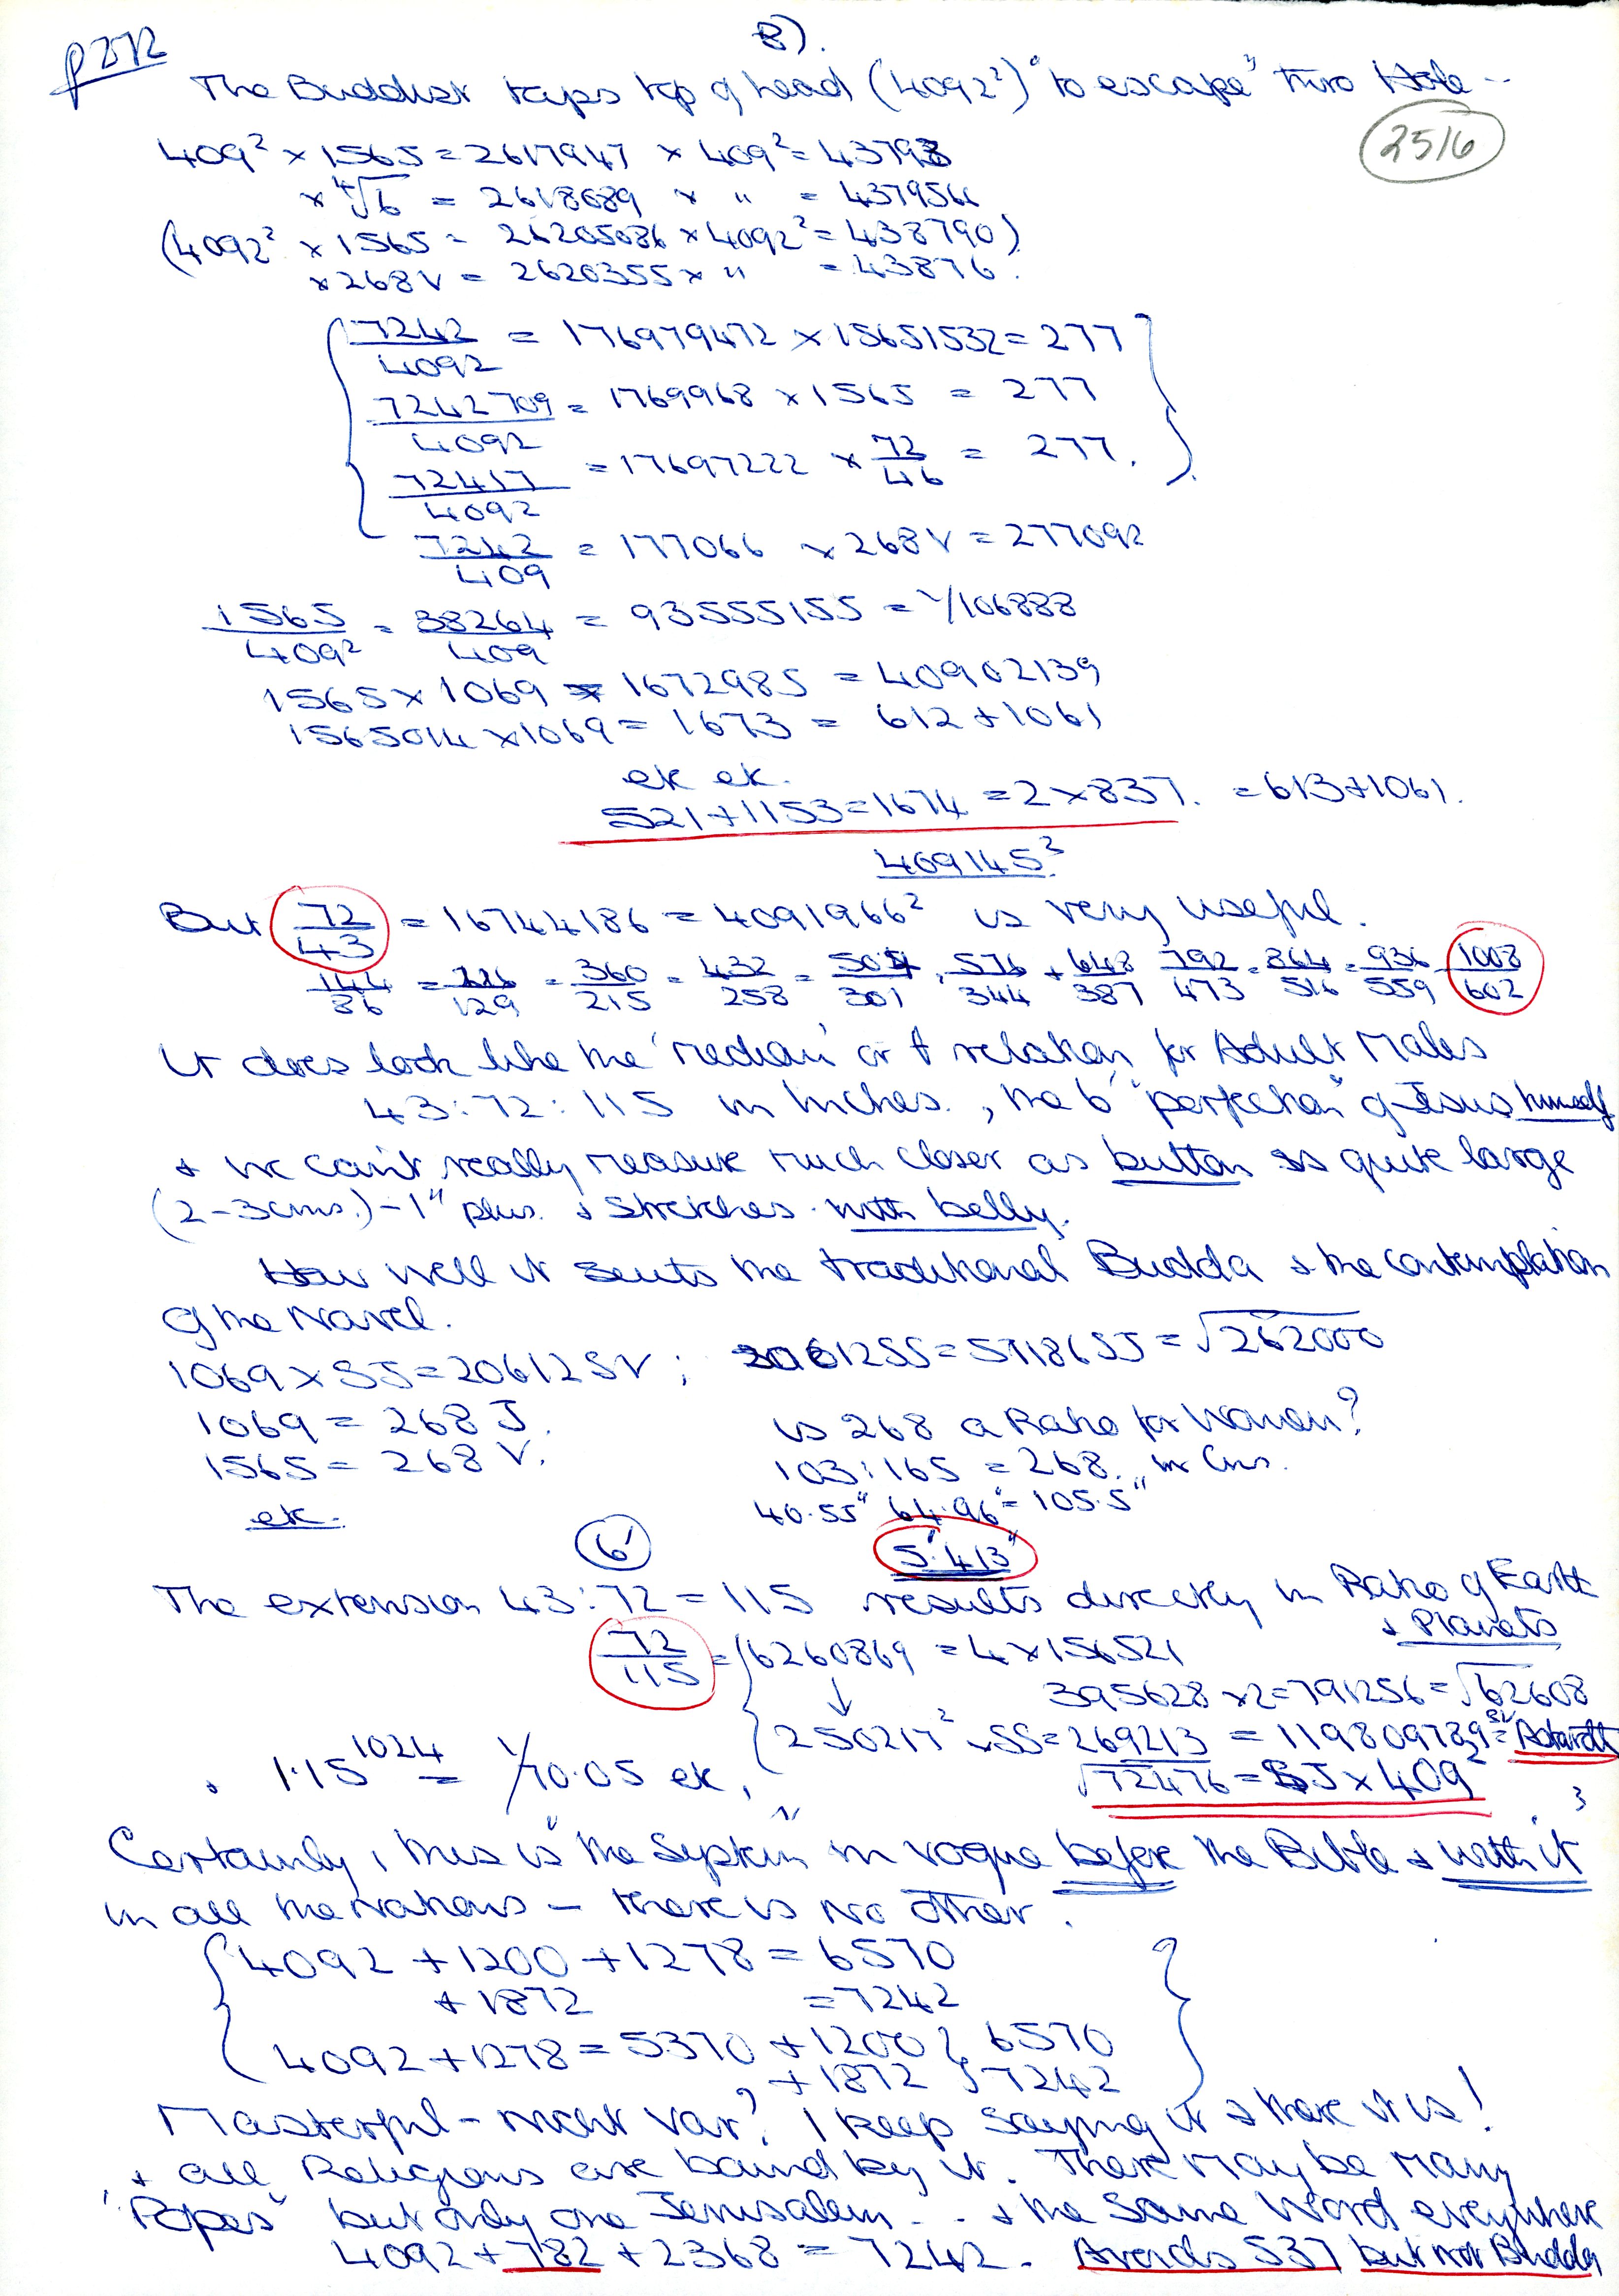 p272
B).
The Buddhist taps top of head (4092²) "to escape" thro Hole --
2516
409² × 1565 = 2617947 × 409² = 43793
× ∜6 = 2618689 × " = 4379566
(4092² × 1565 = 26205086 × 4092² = 438790)
× 268V = 2620355 × " = 43876.
7242/4092 = 176979472 × 15651532 = 277
7242709/4092 = 1769968 × 1565 = 277
72417/4092 = 17697222 × 72/46 = 277.
7242/409 = 177066 × 268V = 277092
1565/409² = 38264/409 = 93555155 = 1/106888
1565 × 1069 = 1672985 = 40902139
1565014 × 1069 = 1673 = 612 + 1061
ek ek.
521 + 1153 = 1674 = 2 × 837. = 613 + 1061.
409145²
But 72/43 = 16744186 = 4091966² is very useful.
144/86 = 216/129 = 360/215 = 432/258 = 504/301 . 576/344 + 648/387 792/473 = 864/516 = 936/559 1008/602
It does look like the 'median' or t relation for Adult Males
43 : 72 : 115 in Inches. , the 6' "perfection" of Jesus himself
+ we can't really measure much closer as button is quite large
(2 - 3 cms.) - 1" plus. + stretches with belly.
How well it suits the traditional Budda + the contemplation
of the Navel.
1069 × SJ = 20612SV ; 2061255 = 5718655 = √262000
1069 = 268 J.
is 268 a Ratio for Women?
1565 = 268 V.
103 : 165 = 268. in Cms.
ek.
40.55" 64.96" = 105.5"
6'
5'.413"
The extension 43 : 72 = 115 results directly in Ratio of Earth
+ Planets
72/115 = 16260869 = 4 × 156521
395628 × 2 = 791256 = √62608
250217² × SS = 269213 = 119809789
1.15¹⁰²⁴ = 1/70.05 ek.
√72476 = SJ × 409²
Certainly, this is "the System" in vogue before the Bible + with it
in all the Nations - there is No Other.
4092 + 1200 + 1278 = 6570
+ 1872 = 7242
4092 + 1278 = 5370 + 1200 } 6570
+ 1872 } 7242
Masterful - nicht var? I keep saying it + there it is!
+ all Religions are bound by it. There may be many
"Popes" but only one Jerusalem . . + the Same Word everywhere
4092 + 782 + 2368 = 7242. Avoids 537 but not Budda